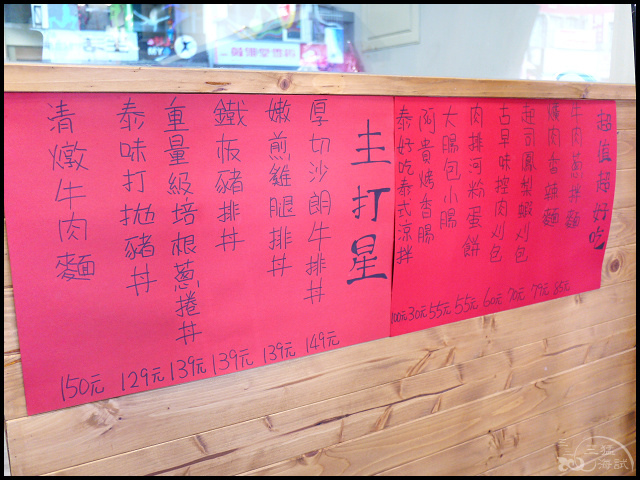 超值超好吃
牛肉蔥拌麵 85元
爌肉香辣麵 79元
起司鳳梨蝦刈包 70元
古早味控肉刈包 60元
肉排河粉蛋餅 55元
大腸包小腸 55元
阿貴烤香腸 30元
泰好吃泰式涼拌 100元
主打星
厚切沙朗牛排丼 149元
嫩煎雞腿排丼 139元
鐵板豬排丼 139元
重量級培根蔥捲丼 139元
泰味打拋豬丼 129元
清燉牛肉麵 150元